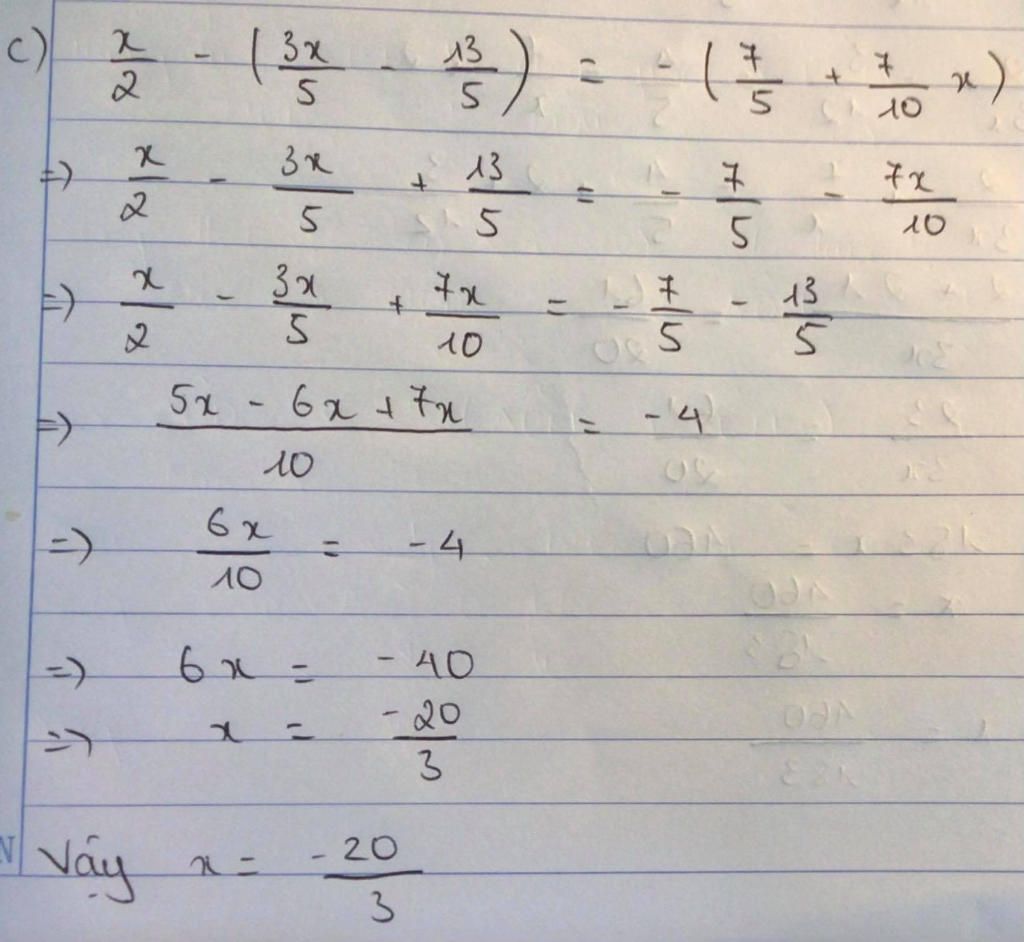 c) x/2 - (3x/5 - 13/5) = - (7/5 + 7/10 x)
=> x/2 - 3x/5 + 13/5 = - 7/5 - 7x/10
=> x/2 - 3x/5 + 7x/10 = - 7/5 - 13/5
=> (5x - 6x + 7x)/10 = -4
=> 6x/10 = -4
=> 6x = -40
=> x = -20/3
Vậy x = -20/3